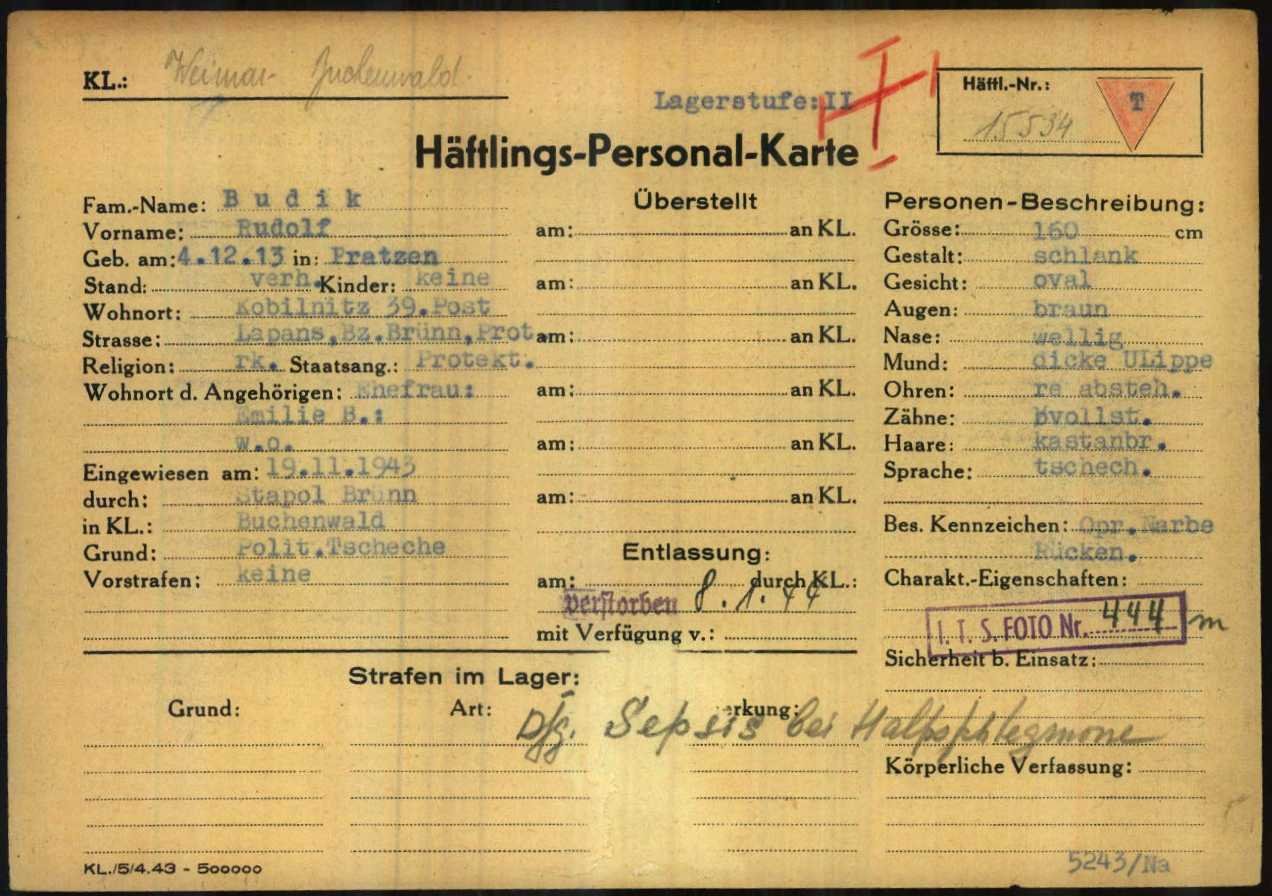 KL.: Weimar - Buchenwald
Lagerstufe:II
Häftl.-Nr.:
15534
T
Häftlings-Personal-Karte
Fam.-Name: Budik
Vorname: Rudolf
Geb. am: 4.12.13 in: Pratzen
Stand: verh. Kinder: keine
Wohnort: Kobilnitz 39.Post
Strasse: Lapans,Bz.Brünn,Prot.
Religion: rk. Staatsang.: Protekt.
Wohnort d. Angehörigen: Ehefrau:
Emilie B.:
w.o.
Eingewiesen am: 19.11.1943
durch: Stapol Brünn
in KL.: Buchenwald
Grund: Polit.Tscheche
Vorstrafen: keine
Überstellt
am: an KL.
am: an KL.
am: an KL.
am: an KL.
am: an KL.
am: an KL.
Entlassung:
am: durch KL.:
verstorben 8.1.44
mit Verfügung v.:
Personen-Beschreibung:
Grösse: 160 cm
Gestalt: schlank
Gesicht: oval
Augen: braun
Nase: wellig
Mund: dicke ULippe
Ohren: re absteh.
Zähne: bvollst.
Haare: kastanbr.
Sprache: tschech.
Bes. Kennzeichen: Opr.Narbe
Rücken.
Charakt.-Eigenschaften:
I. T. S. FOTO Nr. 444 m
Sicherheit b. Einsatz:
Strafen im Lager:
Grund: Art: erkung:
Sepsis bei Halsphlegmone
Körperliche Verfassung:
KL./5/4.43 - 500000
5243/Na